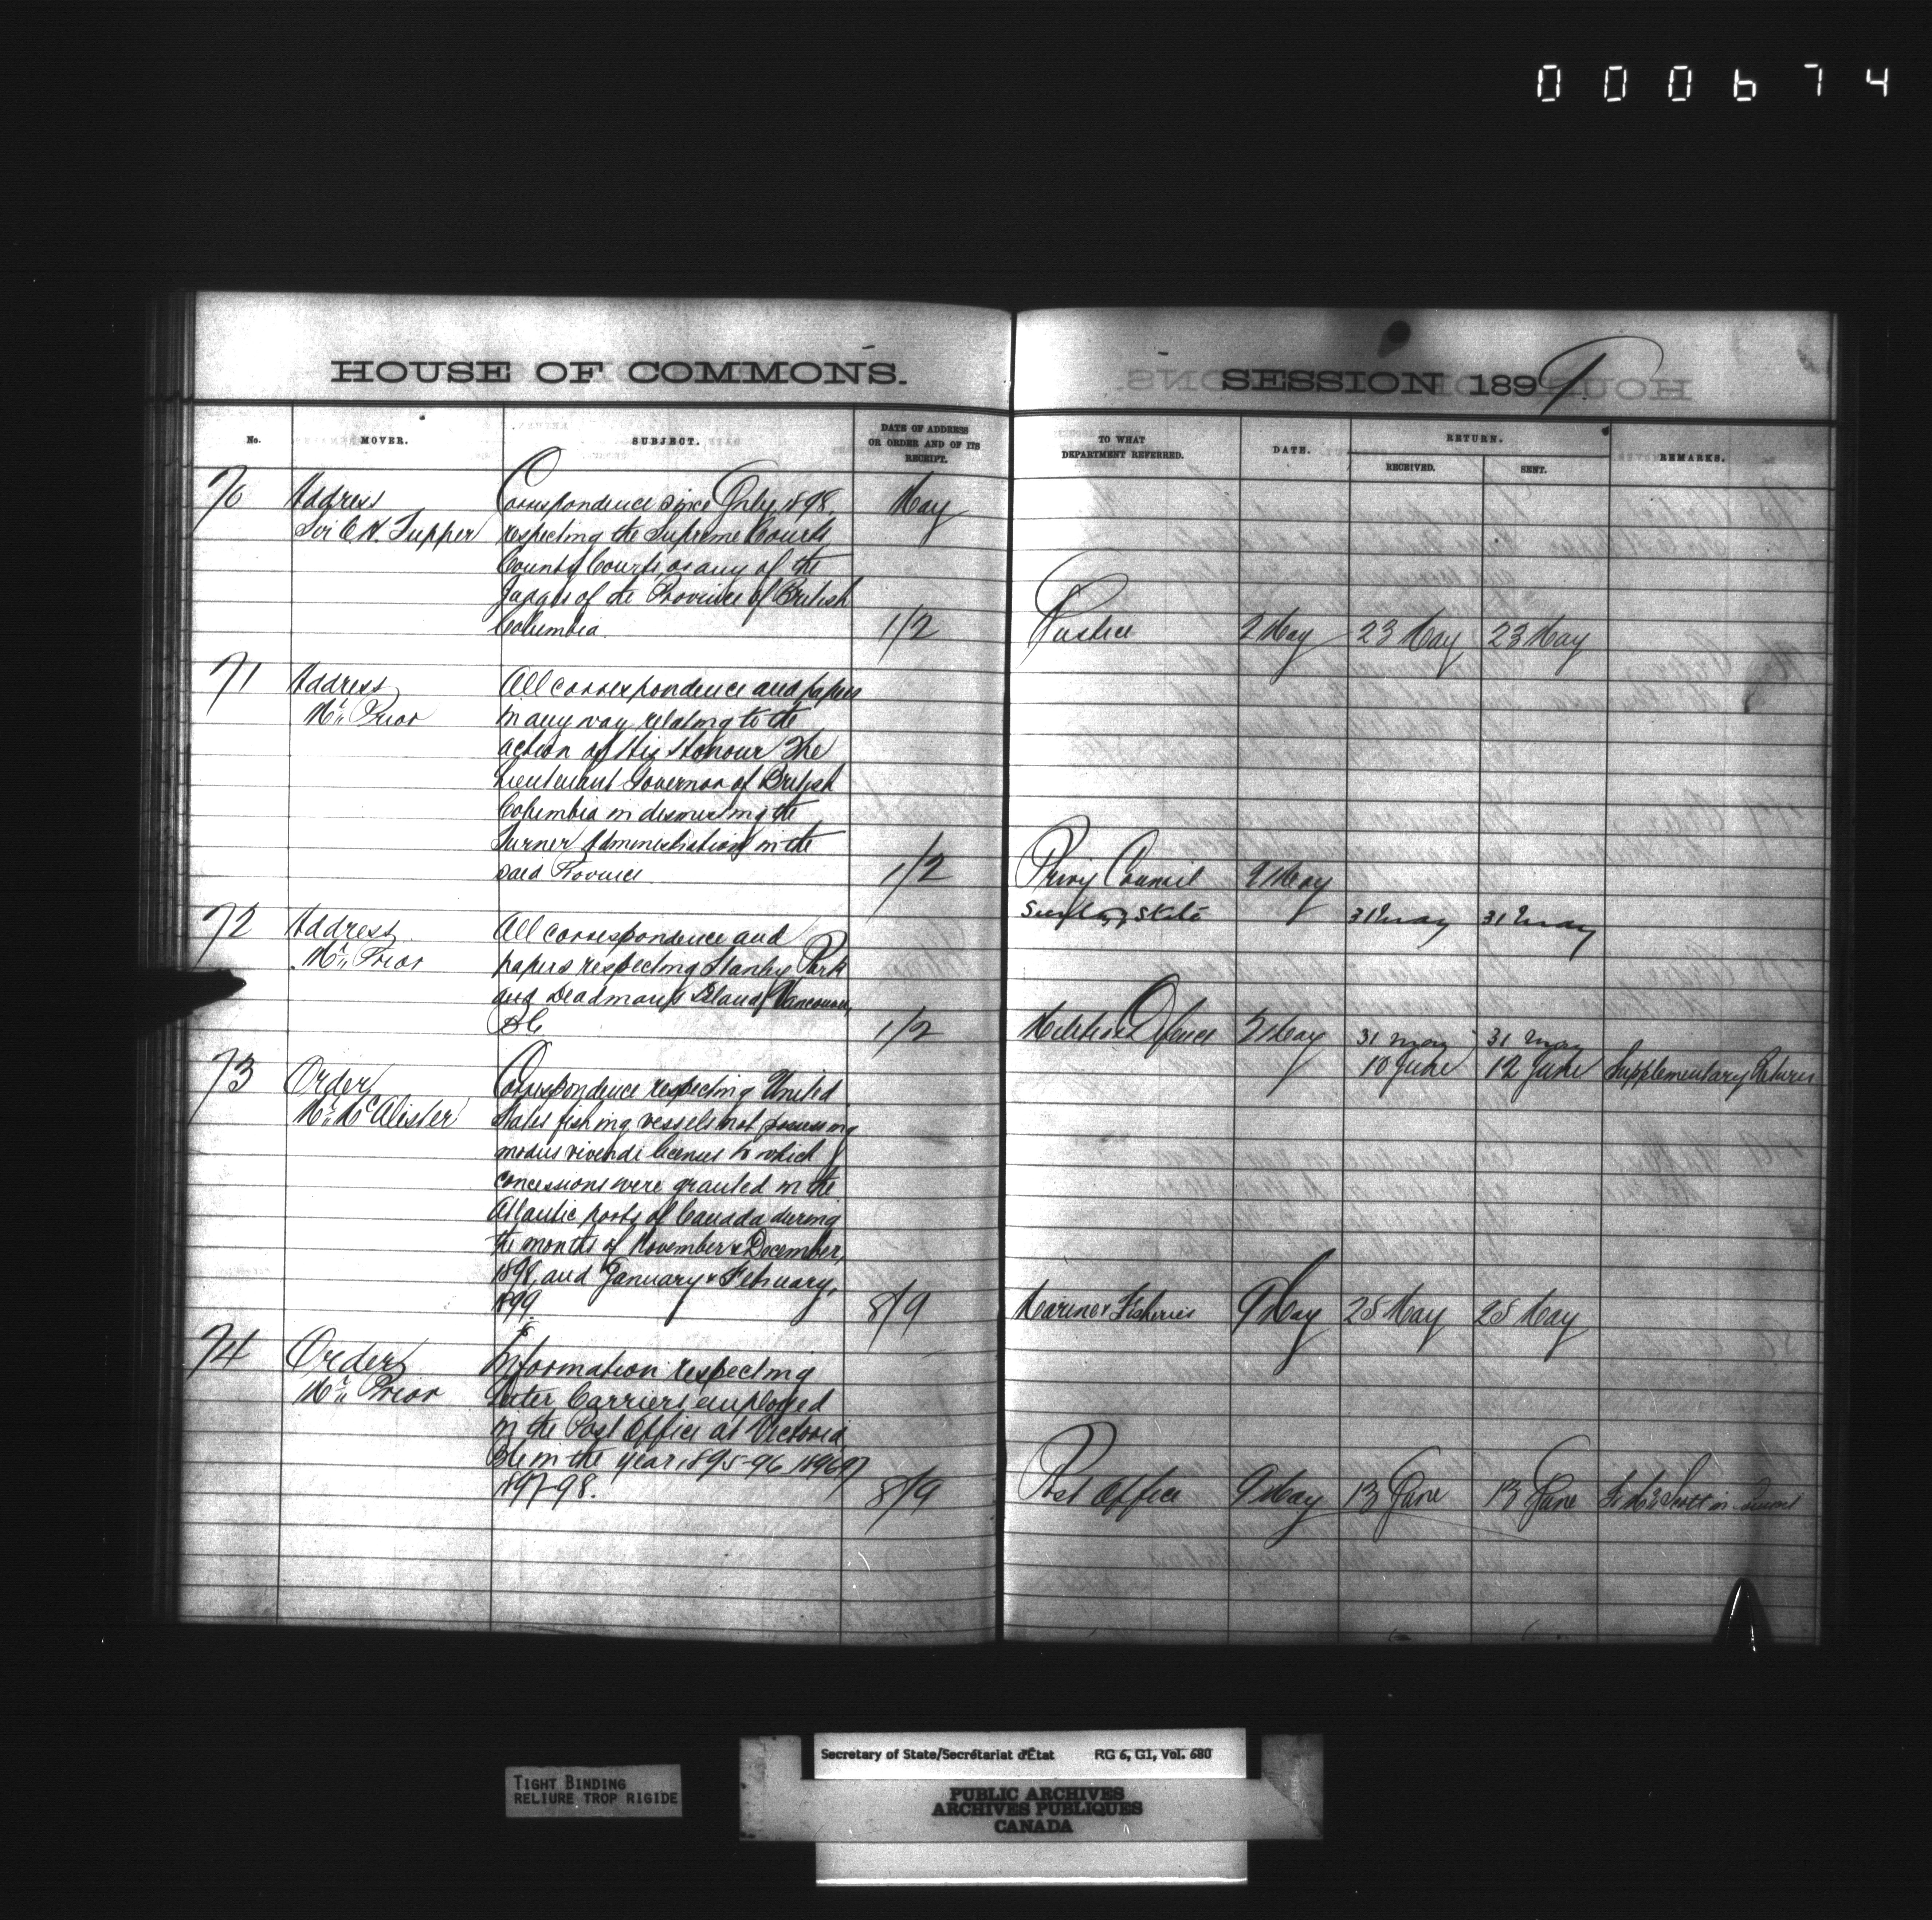 000674
HOUSE OF COMMONS.
SESSION 1899.
No.
MOVER.
SUBJECT.
DATE OF ADDRESS
OR ORDER AND OF ITS
RECEIPT.
TO WHAT
DEPARTMENT REFERRED.
DATE.
RETURN.
RECEIVED.
SENT.
REMARKS.
70
Address
Sir C. H. Tupper
Correspondence since July 1898,
respecting the Supreme Courts
County Courts, or any of the
Judges of the Province of British
Columbia.
May
1/2
Justice
2 May
23 May
23 May
71
Address
Mr. Prior
All correspondence and papers
in any way relating to the
action of His Honour The
Lieutenant Governor of British
Columbia in dismissing the
Turner Administration in the
said Province
1/2
Privy Council
2 May
Secty of State
31 May
31 May
72
Address
Mr. Prior
All correspondence and
papers respecting Stanley Park
and Deadman's Island, Vancouver,
BC
1/2
Militia & Defence
2 May
31 May
31 May
10 June
12 June
Supplementary Return
73
Order
Mr. McAlister
Correspondence respecting United
States fishing vessels not possessing
modus vivendi licenses to which
concessions were granted in the
Atlantic ports of Canada during
the months of November & December,
1898, and January & February,
1899.
8/9
Marine & Fisheries
9 May
25 May
25 May
74
Order
Mr. Prior
Information respecting
Letter Carriers employed
in the Post Office at Victoria
BC in the year 1895-96, 1896-97
1897-98.
8/9
Post Office
9 May
13 June
13 June
To Mr. Scott in
TIGHT BINDING
RELIURE TROP RIGIDE
Secretary of State/Secrétariat d'État RG 6, G1, Vol. 680
PUBLIC ARCHIVES
ARCHIVES PUBLIQUES
CANADA